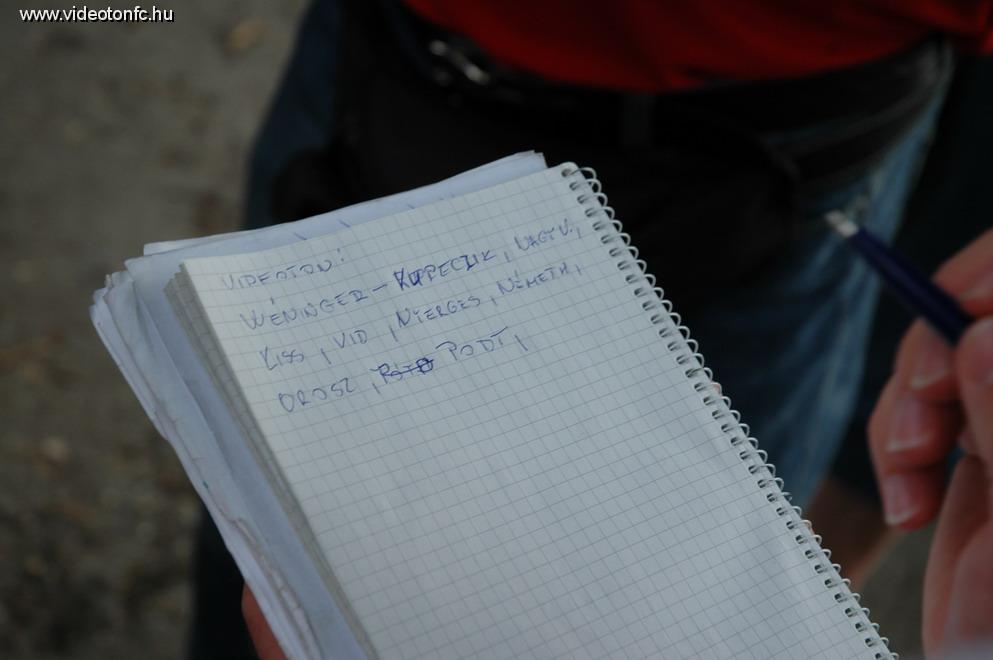 www.videotonfc.hu
VIDEOTON:
WÉNINGER – KUPECZIK, NAGY V.,
KISS, VID, NYERGES, NÉMETH,
OROSZ, PODI,